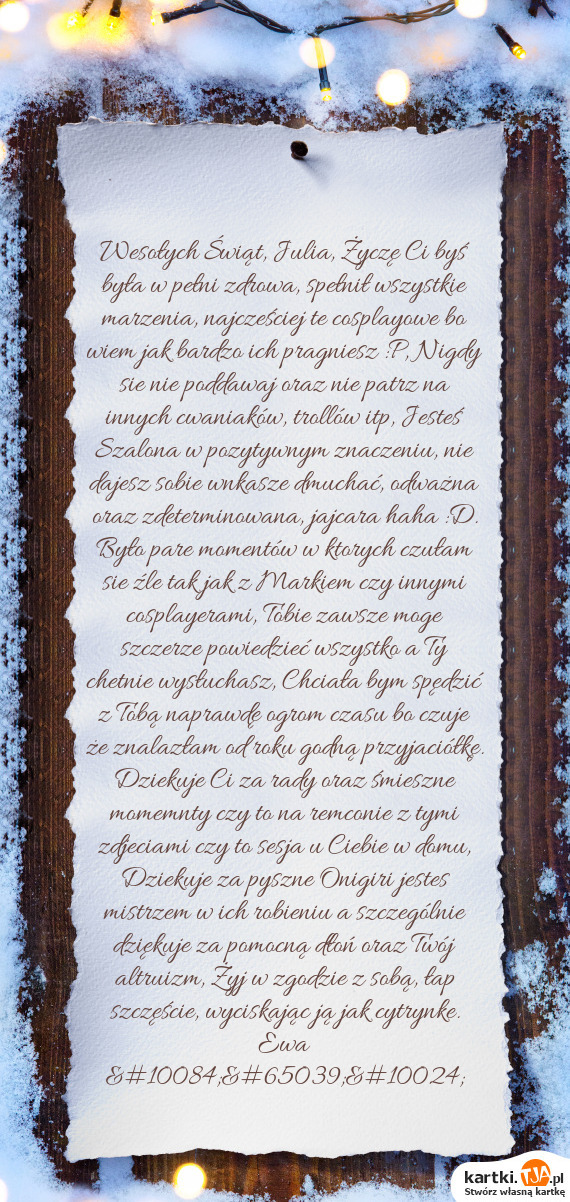 Wesołych Świąt, Julia, Życzę Ci byś
była w pełni zdrowa, spełnił wszystkie
marzenia, najcześciej te cosplayowe bo
wiem jak bardzo ich pragniesz :P, Nigdy
sie nie poddawaj oraz nie patrz na
innych cwaniaków, trollów itp, Jesteś
Szalona w pozytywnym znaczeniu, nie
dajesz sobie wnkasze dmuchać, odważna
oraz zdeterminowana, jajcara haha :D.
Było pare momentów w ktorych czułam
sie źle tak jak z Markiem czy innymi
cosplayerami, Tobie zawsze moge
szczerze powiedzieć wszystko a Ty
chetnie wysłuchasz, Chciała bym spędzić
z Tobą naprawdę ogrom czasu bo czuje
że znalazłam od roku godną przyjaciółkę.
Dziekuje Ci za rady oraz śmieszne
momemnty czy to na remconie z tymi
zdjeciami czy to sesja u Ciebie w domu,
Dziekuje za pyszne Onigiri jestes
mistrzem w ich robieniu a szczególnie
dziękuje za pomocną dłoń oraz Twój
altruizm, Żyj w zgodzie z sobą, łap
szczęście, wyciskając ją jak cytrynke.
Ewa
&#10084;&#65039;&#10024;
kartki.TJA.pl
Stwórz własną kartkę